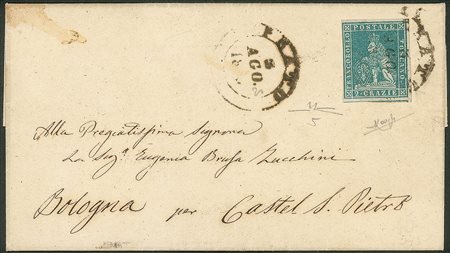 PRATO
5
AGO.
FRANCOBOLLO
POSTALE
TOSCANO
2 CRAZIE
PRATO
5
Alla Pregiatissima Signora
La Sig.ª Eugenia Brusa Zucchini
Bologna per Castel S. Pietro